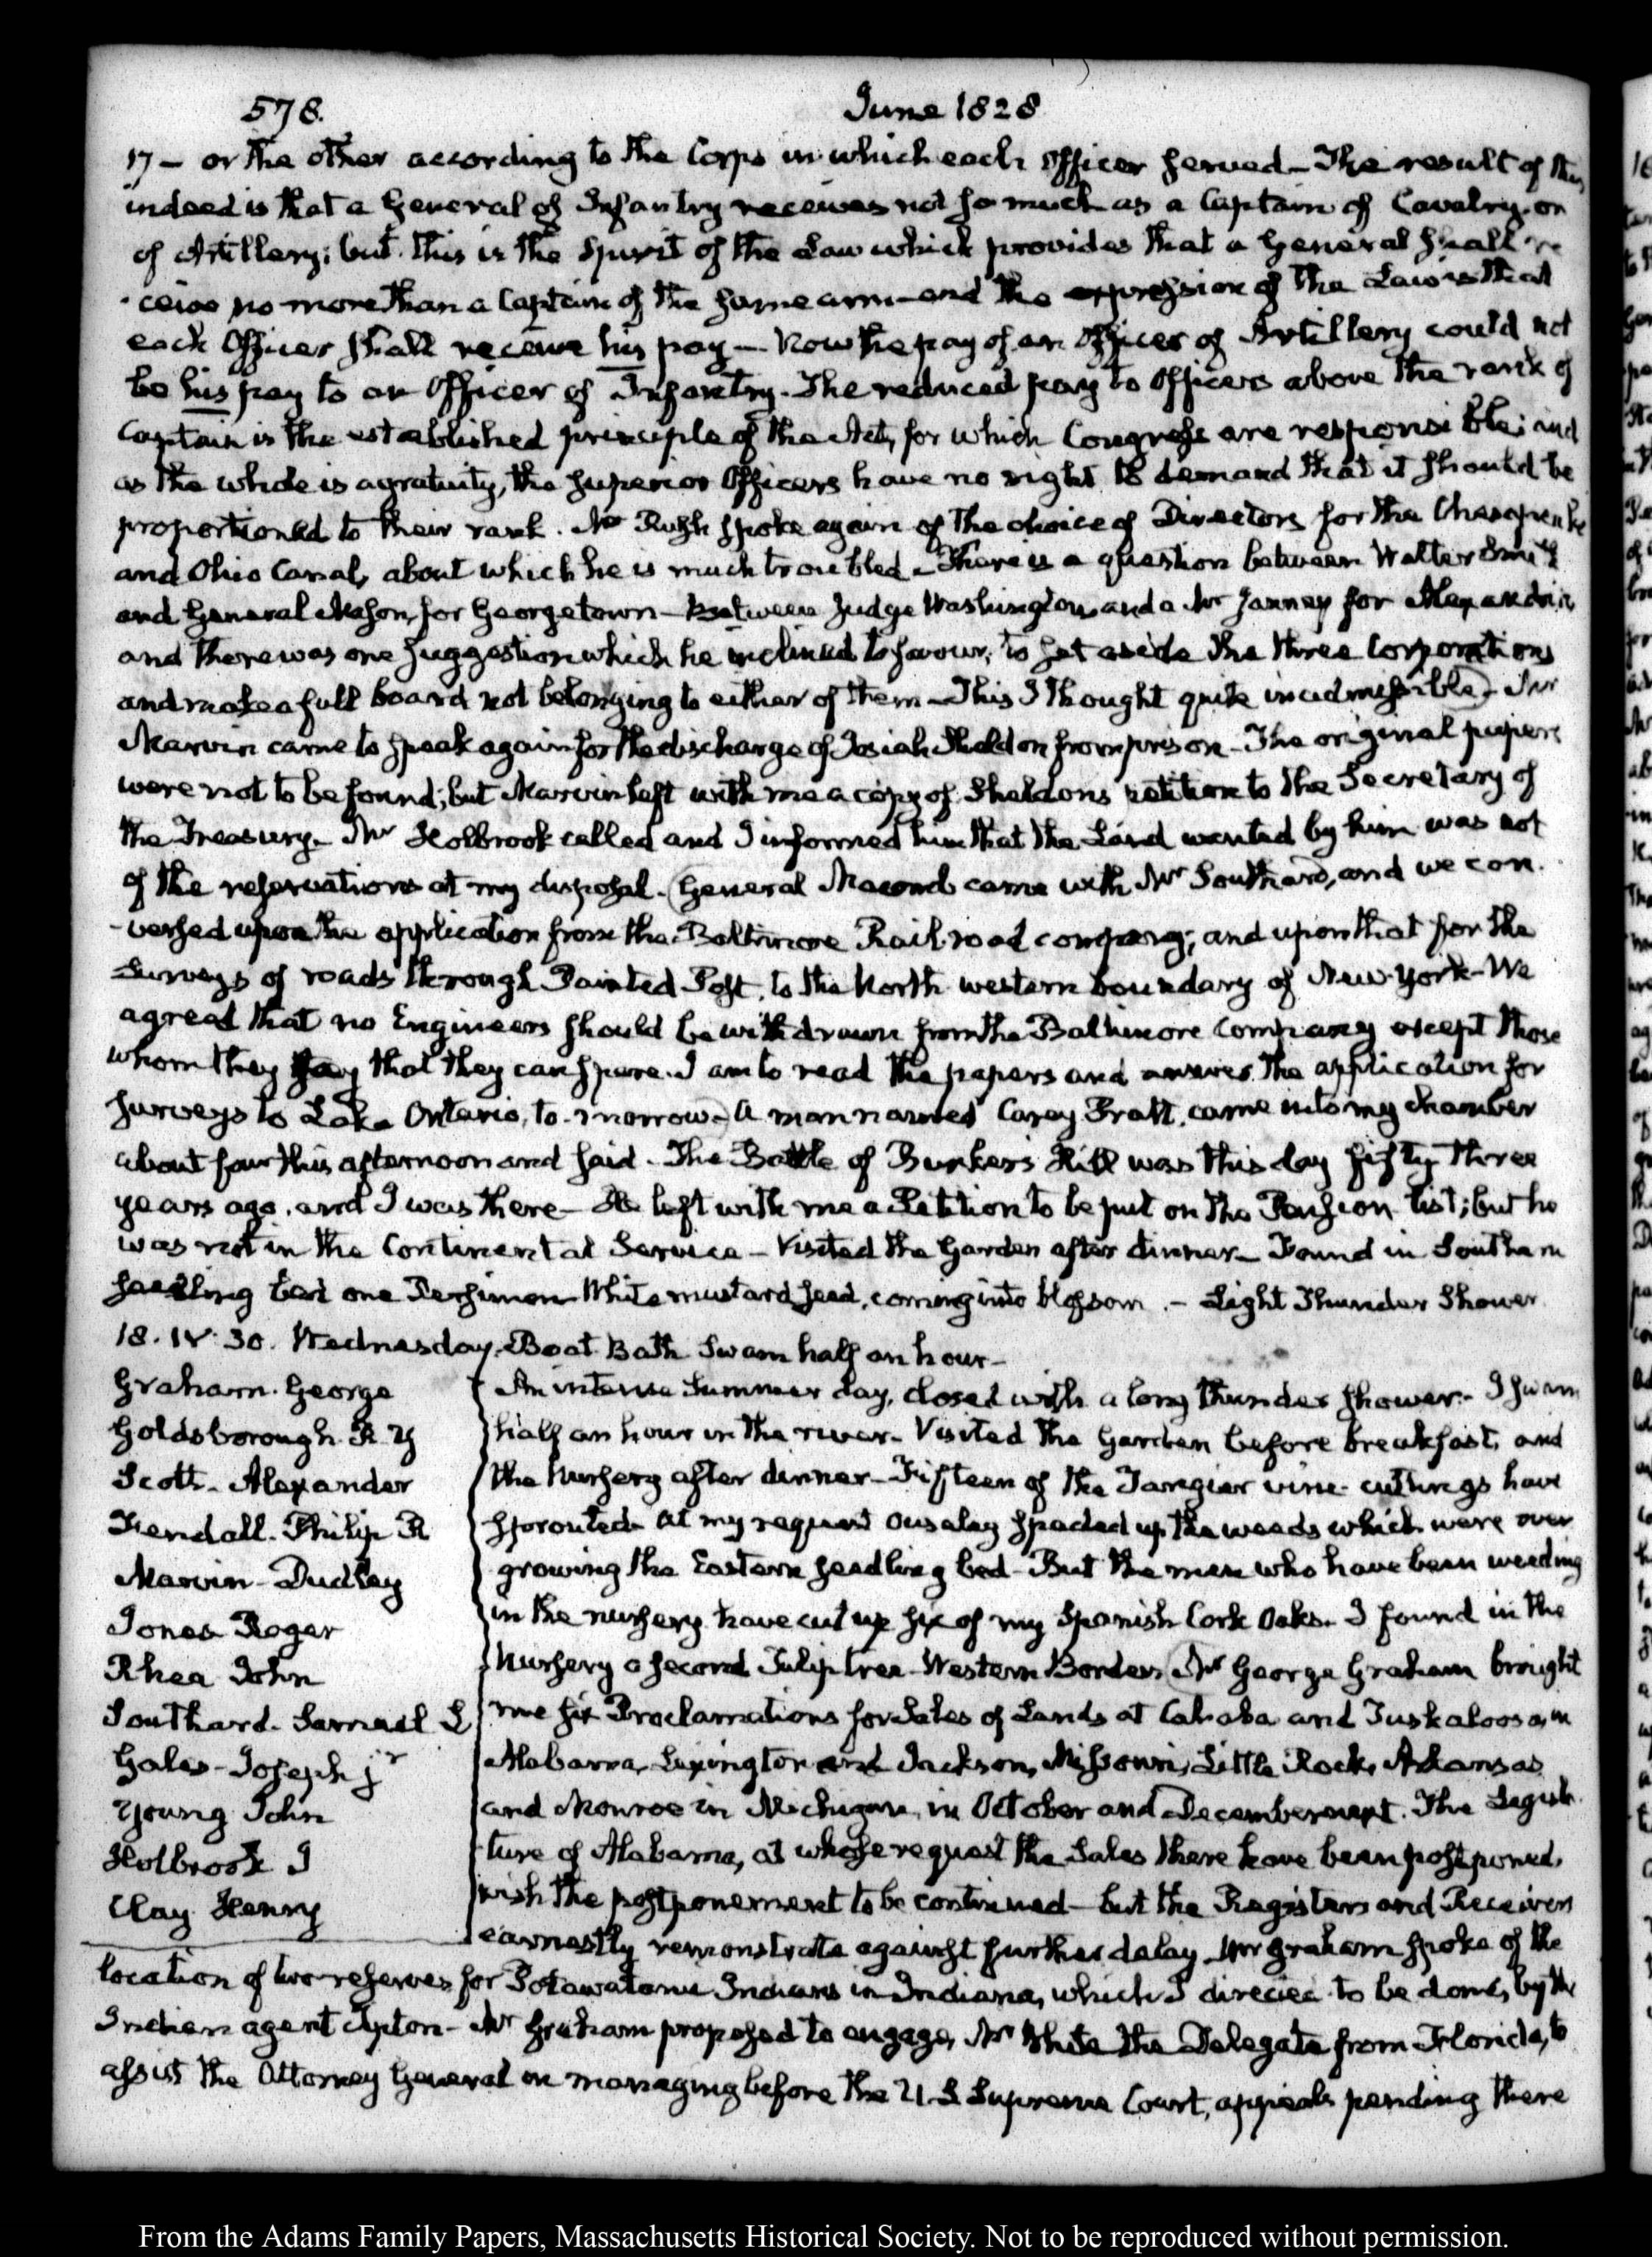 578. June 1828
17 — or the other according to the Corps in which each Officer served — The result of this
indeed is that a General of Infantry receives not so much as a Captain of Cavalry or
of Artillery; but this is the spirit of the Law which provides that a General shall re
ceive no more than a Captain of the same arm — and the expression of the Law is that
each Officer shall receive his pay — Now the pay of an Officer of Artillery could not
be his pay to an Officer of Infantry. The reduced pay to Officers above the rank of
Captain is the established principle of the Act, for which Congress are responsible; and
as the whole is a gratuity, the superior Officers have no right to demand that it should be
proportioned to their rank. Mr Rush spoke again of the choice of Directors for the Chesapeake
and Ohio Canal, about which he is much troubled — There is a question between Walter Smith
and General Mason, for Georgetown — Between Judge Washington and a Mr Janney for Alexandria
and there was one suggestion which he inclined to favour, to set aside the three Corporations
and make a full board not belonging to either of them — This I thought quite inadmissible — Mr
Marvin came to speak again for the discharge of Josiah Sheldon from prison — The original papers
were not to be found; but Marvin left with me a copy of Sheldons petition to the Secretary of
the Treasury — Mr Holbrook called and I informed him that the Land wanted by him was not
of the reservations at my disposal. General Macomb came with Mr Southard, and we con-
-versed upon the application from the Baltimore Rail-road company; and upon that for the
Surveys of roads through Painted Post, to the North western boundary of New-York — We
agreed that no Engineers should be withdrawn from the Baltimore Company except those
whom they say that they can spare. I am to read the papers and answer the application for
surveys to Lake Ontario, to-morrow — A man named Carey Pratt, came into my chamber
about four this afternoon and said — The Battle of Bunker's Hill was this day fifty three
years ago, and I was there — He left with me a Petition to be put on the Pension list; but he
was not in the Continental Service — Visited the Garden after dinner — Found in Southern
seedling bed one Persimon White mustard seed, coming into blossom. — Light Thunder Shower
18. IV. 30. Wednesday. Boat Bath Swam half an hour —
Graham. George
Goldsborough. R. Y
Scott. Alexander
Fendall. Philip R
Marvin — Dudley
Jones Roger
Rhea John
Southard. Samuel L
Gales — Joseph jr
Young John
Holbrook J
Clay Henry
An intense Summer day, closed with a long thunder shower — I swam
half an hour in the river — Visited the Garden before breakfast, and
the Nursery after dinner — Fifteen of the Tangier vine cuttings have
sprouted — At my request Ousley spaded up the weeds which were over
growing the Eastern seedling bed — But the men who have been weeding
in the nursery have cut up six of my Spanish Cork Oaks. I found in the
Nursery a second Tulip tree — Western Border. Mr George Graham brought
me six Proclamations for Sales of Lands at Cahaba and Tuskaloosa, in
Alabama, Lexington and Jackson, Missouri, Little Rock, Arkansas
and Monroe in Michigan, in October and December next. The Legisla
ture of Alabama, at whose request the Sales there have been postponed,
wish the postponement to be continued — but the Registers and Receivers
earnestly remonstrate against further delay — Mr Graham spoke of the
location of two reserves for Potawatomi Indians in Indiana, which I directed to be done, by the
Indian agent Tipton — Mr Graham proposed to engage, Mr White the Delegate from Florida, to
assist the Attorney General in managing before the U.S. Supreme Court, appeals pending there
From the Adams Family Papers, Massachusetts Historical Society. Not to be reproduced without permission.